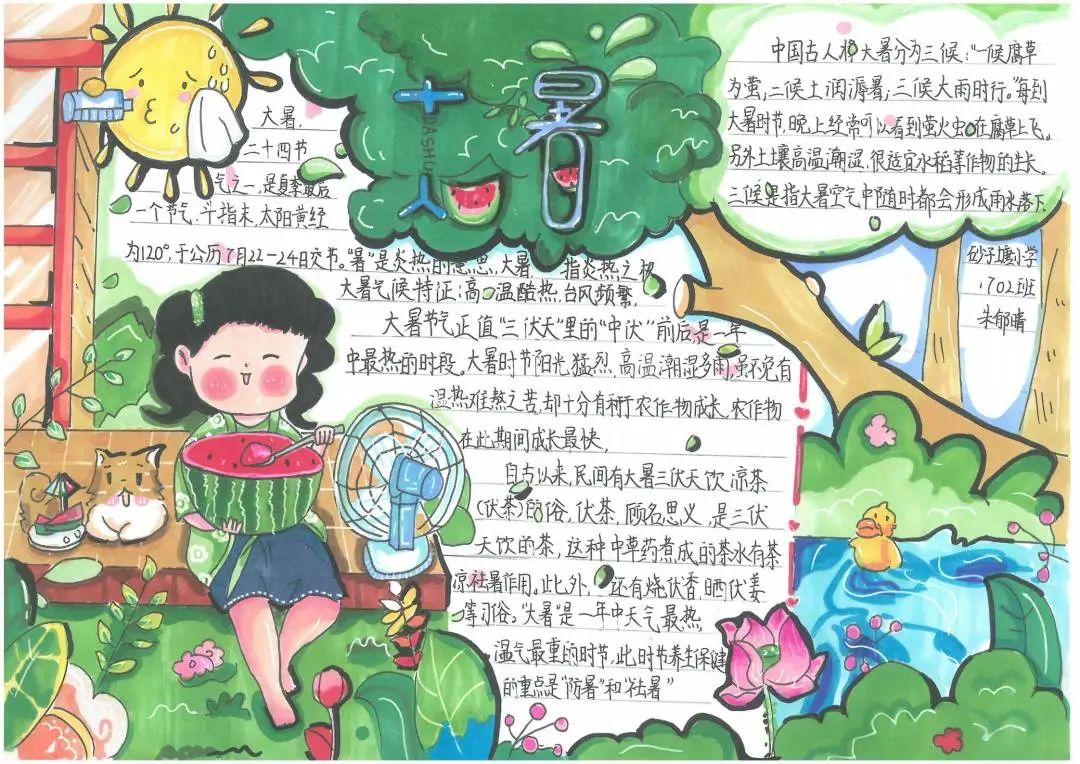 大暑
DASHU
大暑,
二十四节
气之一,是夏季最后
一个节气,斗指未,太阳黄经
为120°,于公历7月22-24日交节。"暑"是炎热的意思,大暑,指炎热之极
大暑气候特征:高温酷热,台风频繁,
大暑节气正值"三伏天"里的"中伏"前后是一年
中最热的时段。大暑时节阳光猛烈,高温潮湿多雨,虽不免有
温热难熬之苦,却十分有利于农作物成长,农作物
在此期间成长最快,
自古以来,民间有大暑三伏天饮凉茶
(伏茶)的俗,伏茶,顾名思义,是三伏
天饮的茶,这种中草药煮成的茶水有茶
凉祛暑作用。此外,还有烧伏香,晒伏姜
等习俗。"大暑"是一年中天气最热
温气最重的时节,此时节养生保健
的重点是"防暑"和"祛暑"
中国古人将大暑分为三候:"一候腐草
为萤,二候土润溽暑;三候大雨时行。"每到
大暑时节,晚上经常可以看到萤火虫在腐草上飞。
另外土壤高温潮湿,很适宜水稻等作物的生长。
三候是指大暑空气中随时都会形成雨水落下.
砂子塘小学
1702班
朱郁晴